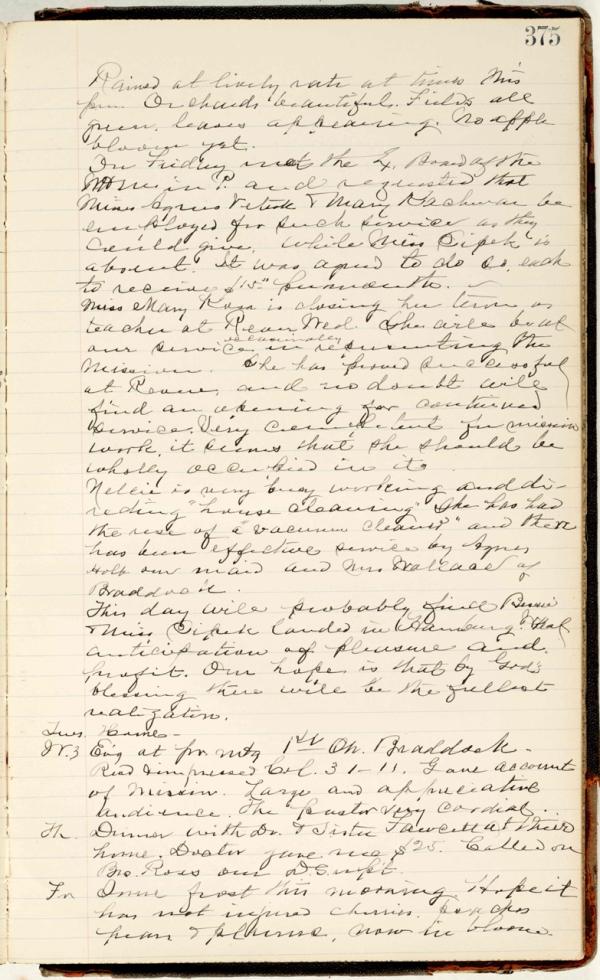 375
Rained at lively rate at times this
p.m. Orchards beautiful. Fields all
green, leaves appearing. No apple
bloom yet.
On Friday met the Ex. Board of the
in P. and requested that
Misses Agnes & Mary be
employed for such service as they
could give, while Miss Sipek is
absent. It was agreed to do so, each
to receive $15 per month.
Miss Mary Ross is closing her term as
teacher at Wed. She will be at
our service occasionally in representing the
Mission. She has proved successful
at and no doubt will
find an opening for continued
service. Very competent for mission
work, it seems that she should be
wholly occupied in it.
Nellie is very busy working and di-
recting "house cleaning" She has had
the use of a "vacuum cleaner" and there
has been effective service by Agnes
our maid and Mrs Wallace of
Braddock.
This day will probably find Bessie
& Miss Sipek landed in Hamburg. What
anticipation of pleasure and
profit. Our hope is that by God's
blessing there will be the fullest
realization.
Tues. Home -
W. 3 Eve at pr. mtg 1st Ch. Braddock -
Read & impressed Col. 3 1-11. Gave account
of Mission. Large and appreciative
audience. The pastor very cordial.
Th. Dinner with Dr. & Sister Fawcett at their
home. Doctor gave me $25. Called on
Bro. Ross our D. Supt.
Fr. Some frost this morning. Hope it
has not injured cherries, peaches
pears & plums, now in bloom.